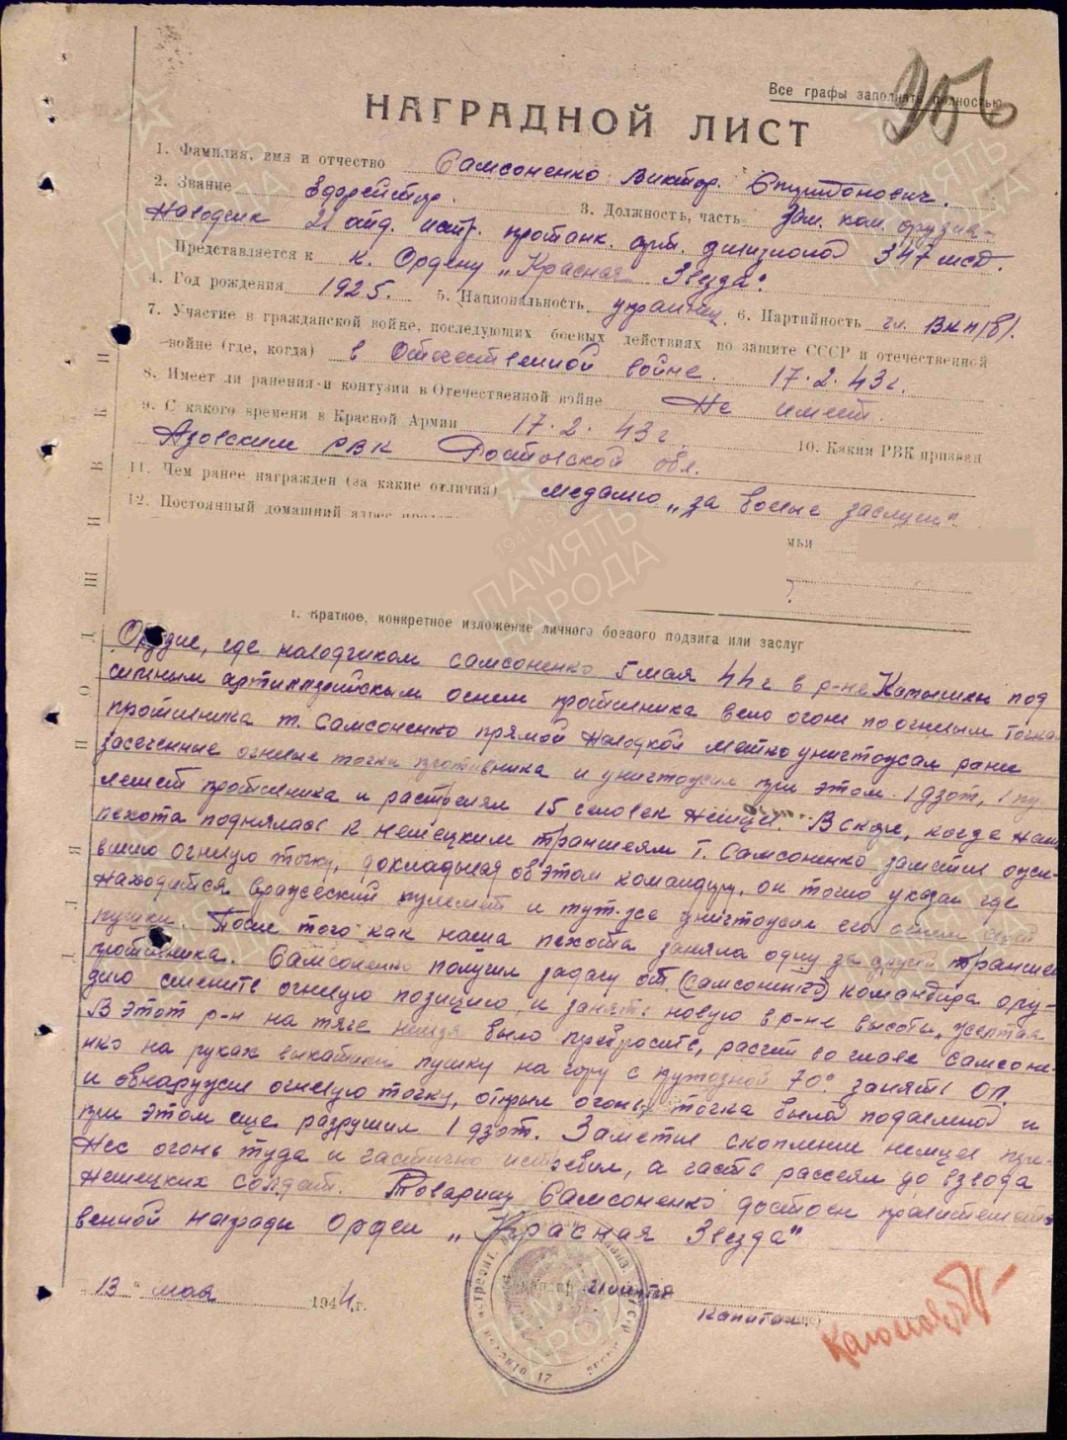 Все графы заполнять полностью
956
НАГРАДНОЙ ЛИСТ
1. Фамилия, имя и отчество Самсоненко Виктор
2. Звание Ефрейтор. 3. Должность, часть Зам. ком. орудия-
Наводчик 21 отд. истр. протанк. арт. дивизиона 347 мсд.
Представляется к к. Ордену „Красная Звезда“.
4. Год рождения 1925. 5. Национальность украинец 6. Партийность чл. ВКП(б).
7. Участие в гражданской войне, последующих боевых действиях по защите СССР и отечественной
войне (где, когда) в Отечественной войне. 17.2.43г.
8. Имеет ли ранения и контузии в Отечественной войне Не имеет.
9. С какого времени в Красной Армии 17.2.43г. 10. Каким РВК призван
Азовским РВК Ростовской обл.
11. Чем ранее награжден (за какие отличия) медалью „за боевые заслуги“.
12. Постоянный домашний адрес
мьи
I. Краткое, конкретное изложение личного боевого подвига или заслуг
Орудие, где наводчиком Самсоненко 5 мая 44г в р-не под
сильным артиллерийским огнем противника вело огонь по огневым точкам
противника т. Самсоненко прямой наводкой метко уничтожал ранее
засеченные огневые точки противника и уничтожил при этом 1 дзот, 1 пу-
лемет противника и расстрелял 15 человек немцев. Вскоре, когда наша
пехота поднялась к немецким траншеям т. Самсоненко заметил ожи-
вшую огневую точку, докладывая об этом командиру, он точно указал где
находится вражеский пулемет и тут-же уничтожил его огнем своей
пушки. После того как наша пехота заняла одну за другой траншеи
противника. Самсоненко получил задачу от (Самсоненко) командира ору-
дия сменить огневую позицию и занять новую в р-не высоты
В этот р-н на тяге нельзя было пребросить, расчет во главе Самсоне-
нко на руках выкатили пушку на гору с крутизной 70° занять ОП.
и обнаружил огневую точку, открыл огонь, точка была подавлена и
при этом еще разрушил 1 дзот. Заметив скопление немцев пре-
нес огонь туда и частично истребил, а часть рассеял до взвода
немецких солдат. Товарищ Самсоненко достоин правительст-
венной награды орден „Красная Звезда“
„13“ мая 1944 г.
капитан